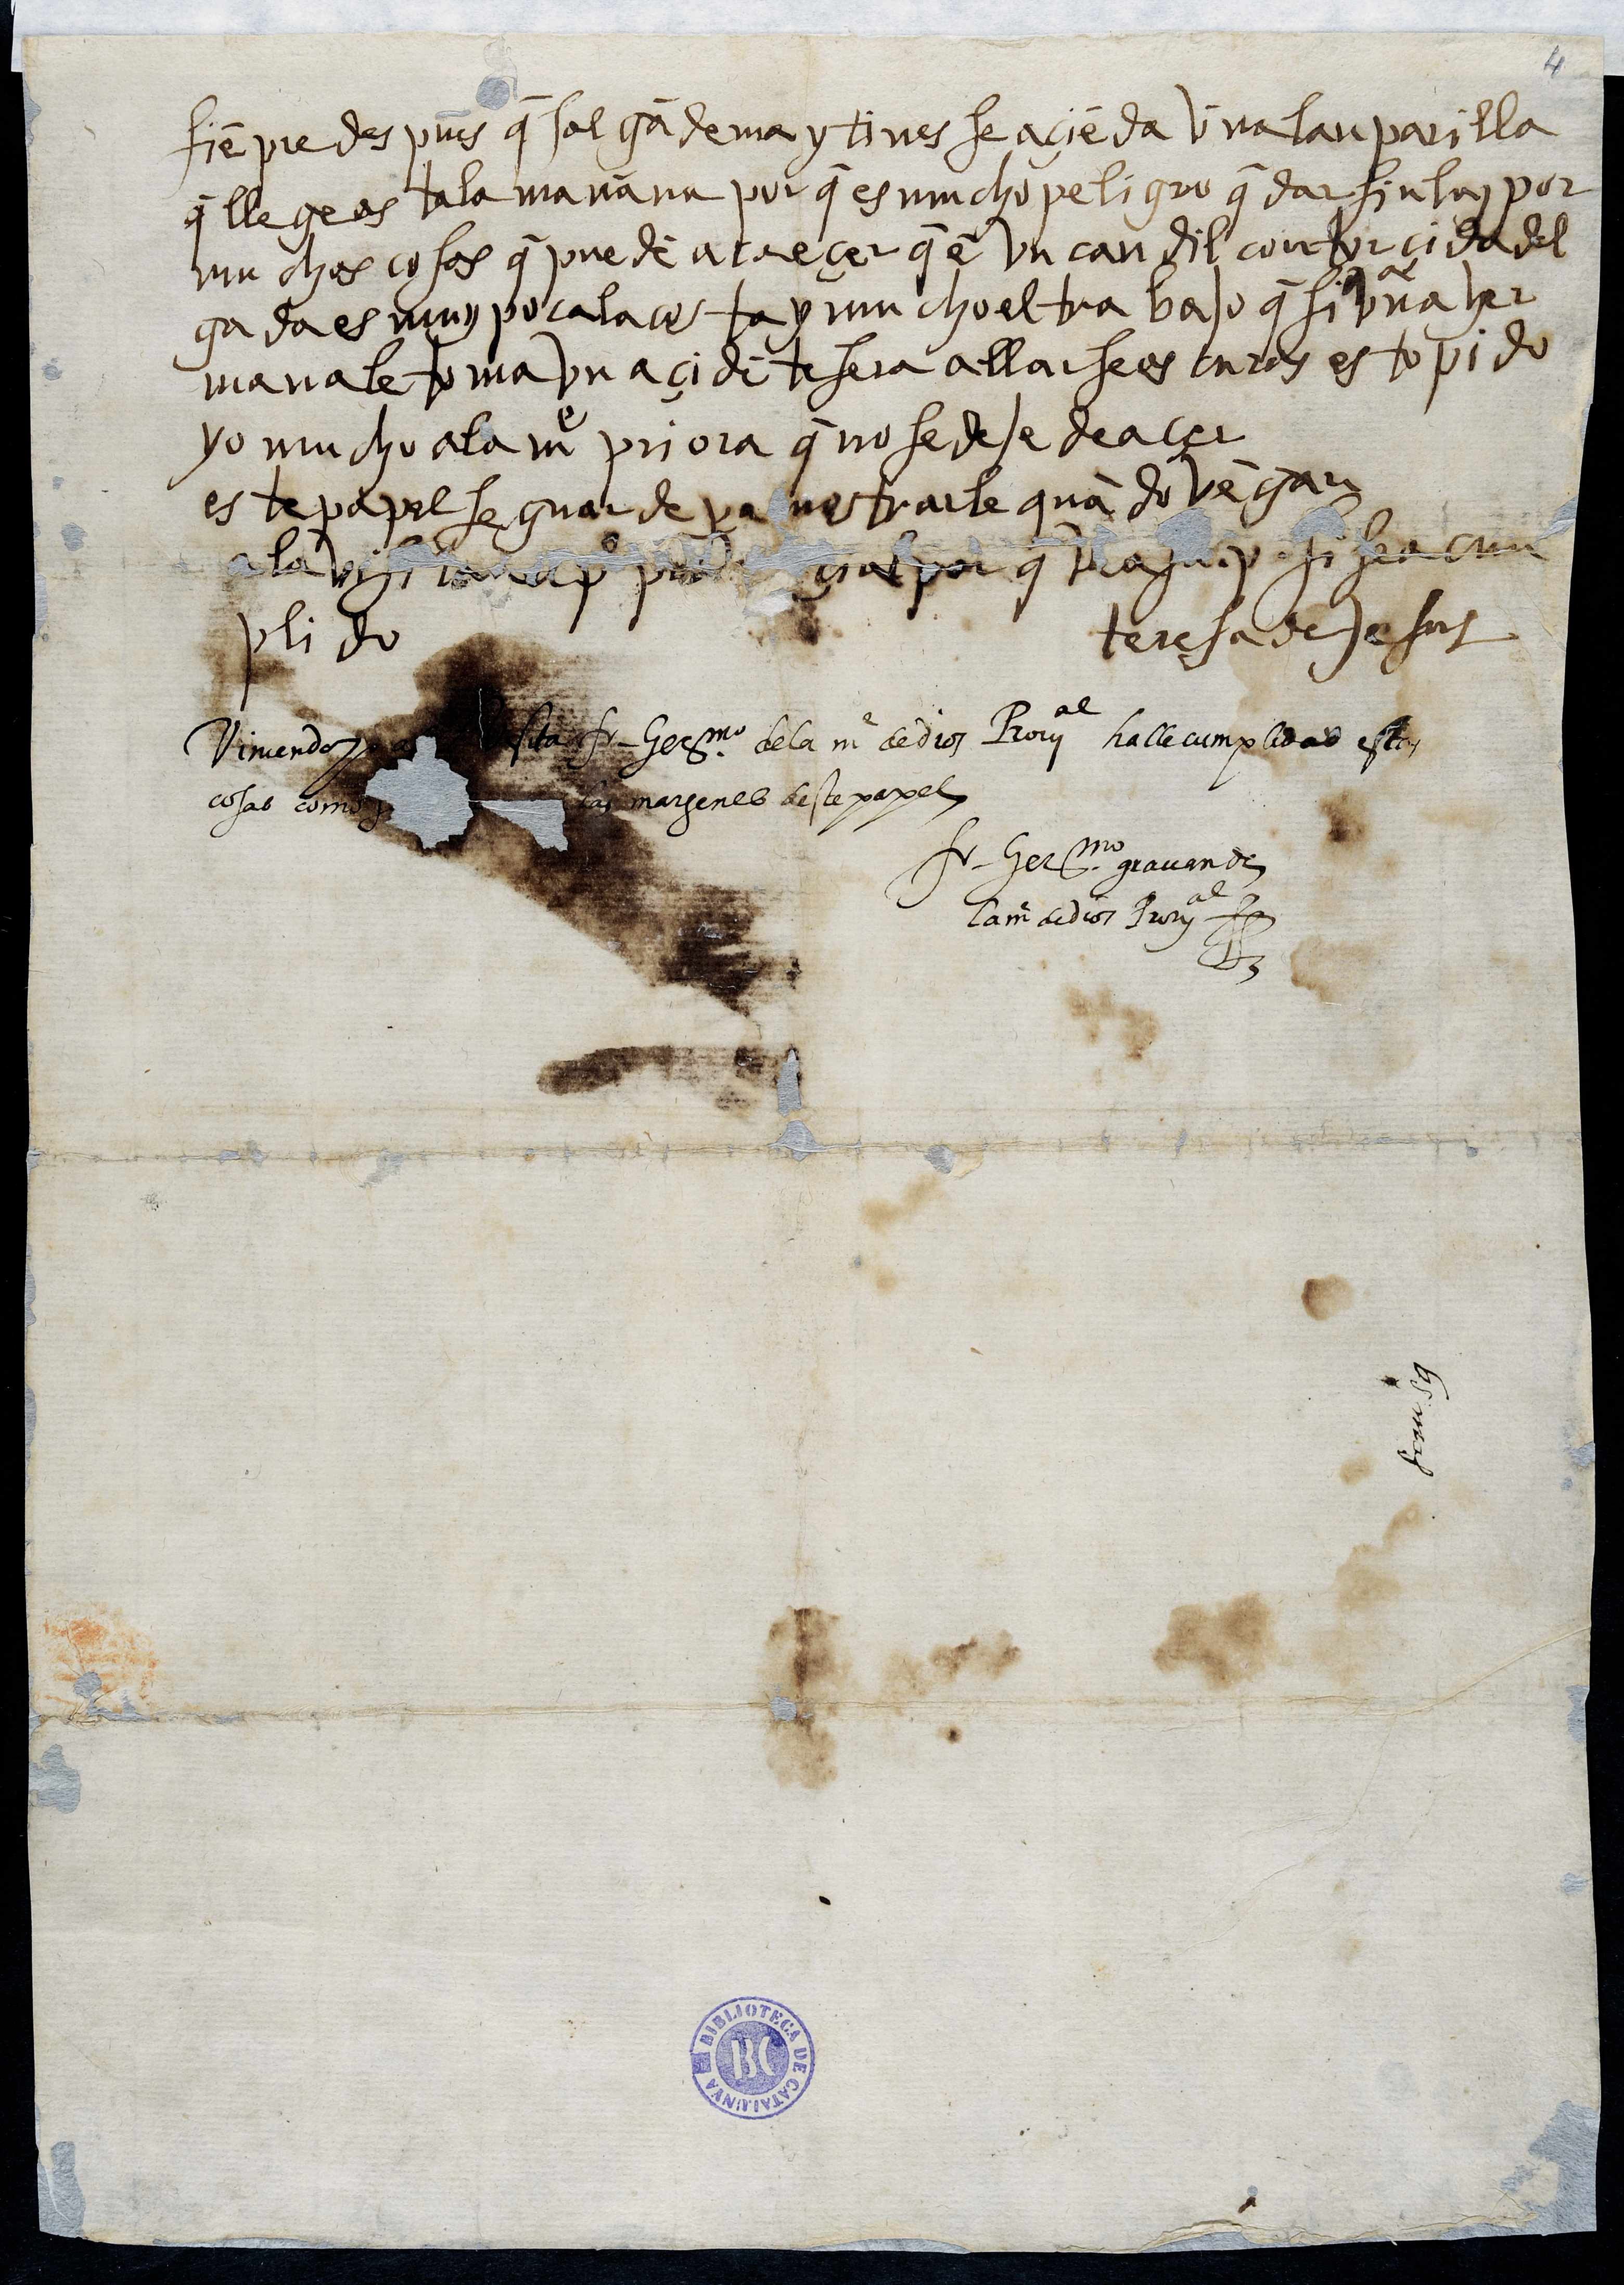 4
siēpre des pues q̄ salgā de maytines se açiēda vna lanparilla
q̄ llege as ta la mañana por q̄ es mucho peligro q̄dar sin luz por
muchas cosas q̄ puedē acaeçer q̄ ē vn candil con torçida del
gada es muy poca la cos ta y mucho el trabajo q̄ si a vna her
mana le toma vn açidēte sera allarse as curas es to pido
yo mucho a la mᵉ priora q̄ no se deje de açer
es te papel se guarde pa mos trarle quādo vēgan
a la visita al pᵒ por q̄ vea su p. si se a cun
plido
teresa de Jesus
Viniendo a visita fr. Gerᵐᵒ de la mᵉ de dios Provᵃˡ halle cumplidas estas
cosas como las margenes deste papel
fr. Gerᵐᵒ graçian de
la mᵉ de dios Provᵃˡ
BIBLIOTECA DE CATALUNYA
BC